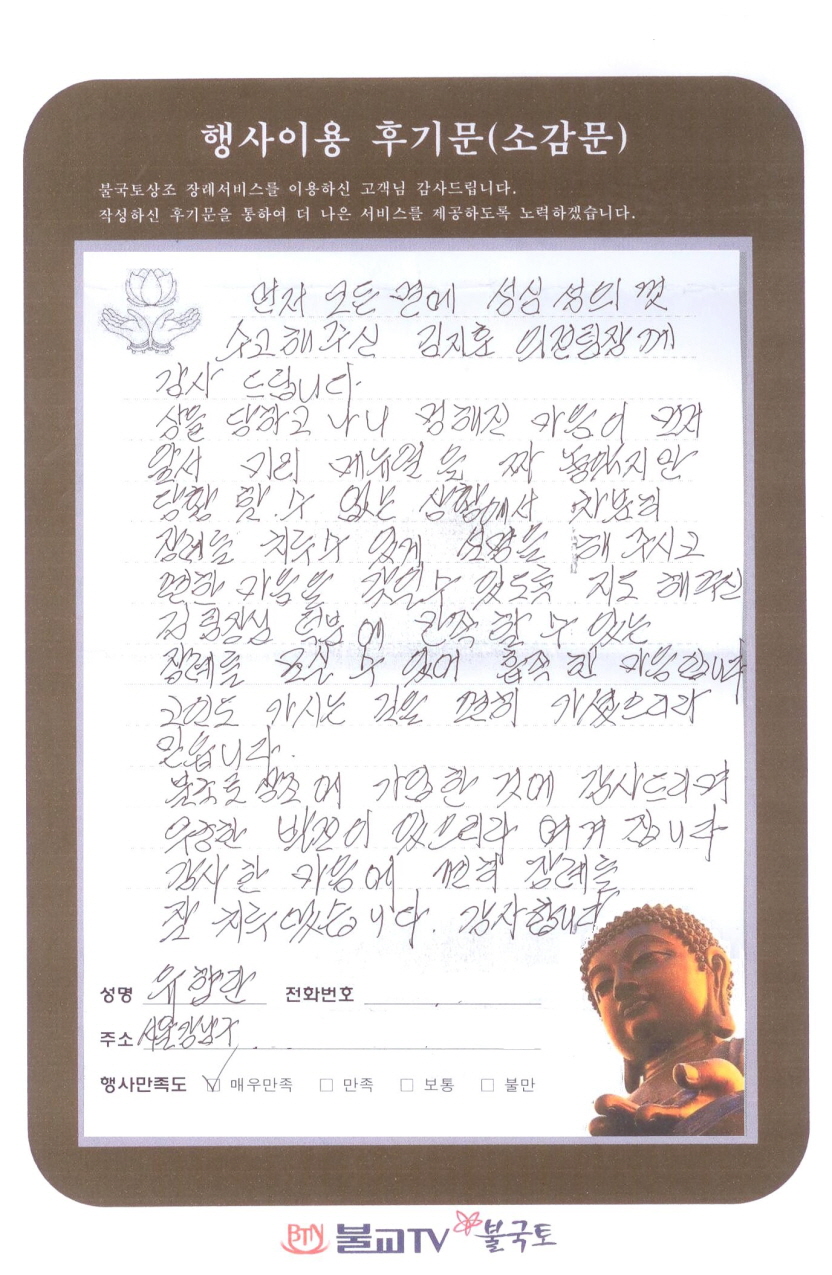 행사이용 후기문(소감문)
불국토상조 장례서비스를 이용하신 고객님 감사드립니다.
작성하신 후기문을 통하여 더 나은 서비스를 제공하도록 노력하겠습니다.
먼저 모든 면에 성심 성의 껏
수고 해 주신 김지훈 의전팀장 께
감사 드립니다.
상을 당하고 나니 멍해진 마음이 먼저
앞서 미리 메뉴얼을 짜 놓았지만
당황 할 수 있는 상황에서 차분히
장례를 치루수 있게 설명을 해 주시고
편한 마음을 갖을수 있도록 지도 해주신
김 팀장님 덕분에 만족 할 수 있는
장례를 모실 수 있어 흡족 한 마음입니다
고인도 가시는 길을 편히 가셨으리라
믿습니다.
불국토 상조에 가입한 것에 감사드리며
무한한 발전이 있으리라 여겨 집니다
감사 한 마음에 편히 장례를
잘 치루었습니다. 감사합니다
성명 전화번호
주소 서울 강남구
행사만족도 ☑ 매우만족 □ 만족 □ 보통 □ 불만
BTN 불교TV 불국토